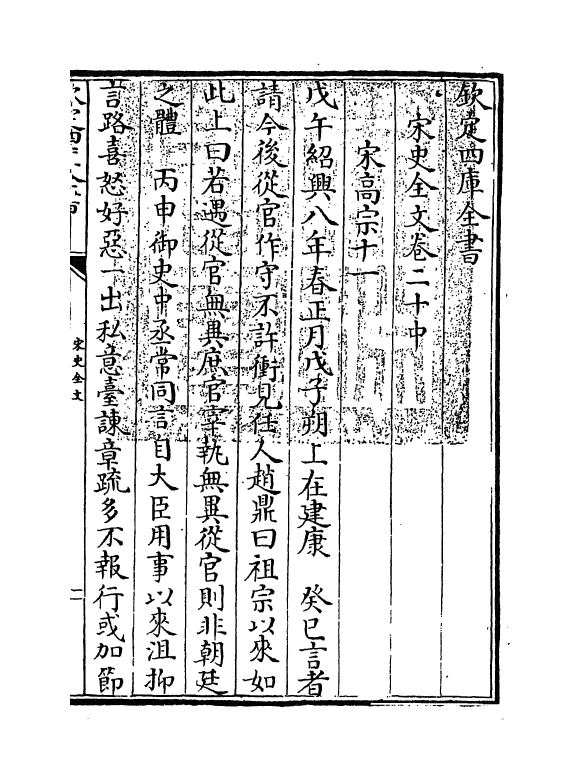 欽定四庫全書
宋史全文卷二十中
宋高宗十一
戊午紹興八年春正月戊子朔上在建康　癸巳言者
請今後從官作守不許衝見任人趙鼎曰祖宗以來如
此上曰若遇從官無異庶官宰執無異從官則非朝廷
之體　丙申御史中丞常同言自大臣用事以來沮抑
言路喜怒好惡一出私意臺諫章疏多不報行或加節
宋史全文
二